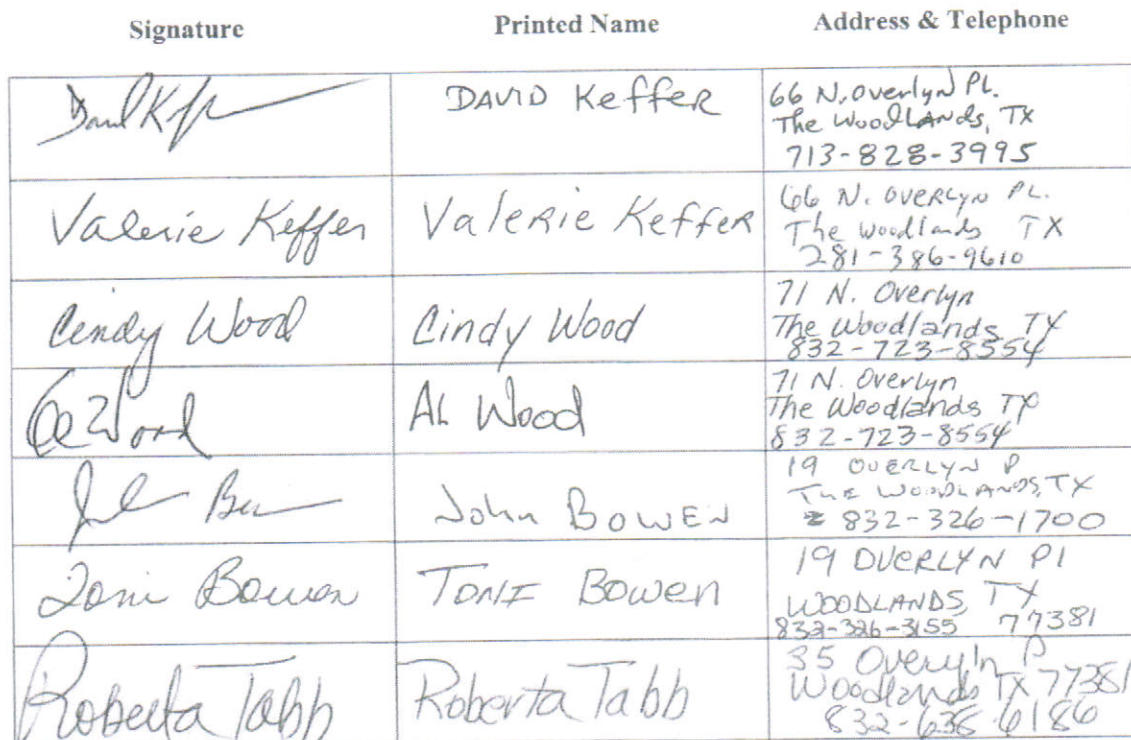 Signature Printed Name Address & Telephone
David Keffer DAVID Keffer 66 N. Overlyn Pl.
The Woodlands, TX
713-828-3995
Valerie Keffer Valerie Keffer 66 N. Overlyn PL.
The Woodlands TX
281-386-9610
Cindy Wood Cindy Wood 71 N. Overlyn
The Woodlands TX
832-723-8554
Al Wood AL Wood 71 N. Overlyn
The Woodlands TX
832-723-8554
John Bowen 19 OVERLYN P
THE WOODLANDS, TX
832-326-1700
Toni Bowen TONI Bowen 19 OVERLYN Pl
WOODLANDS, TX
832-326-3155 77381
Roberta Tabb Roberta Tabb 35 Overyln P
Woodlands TX 77381
832-638-6186